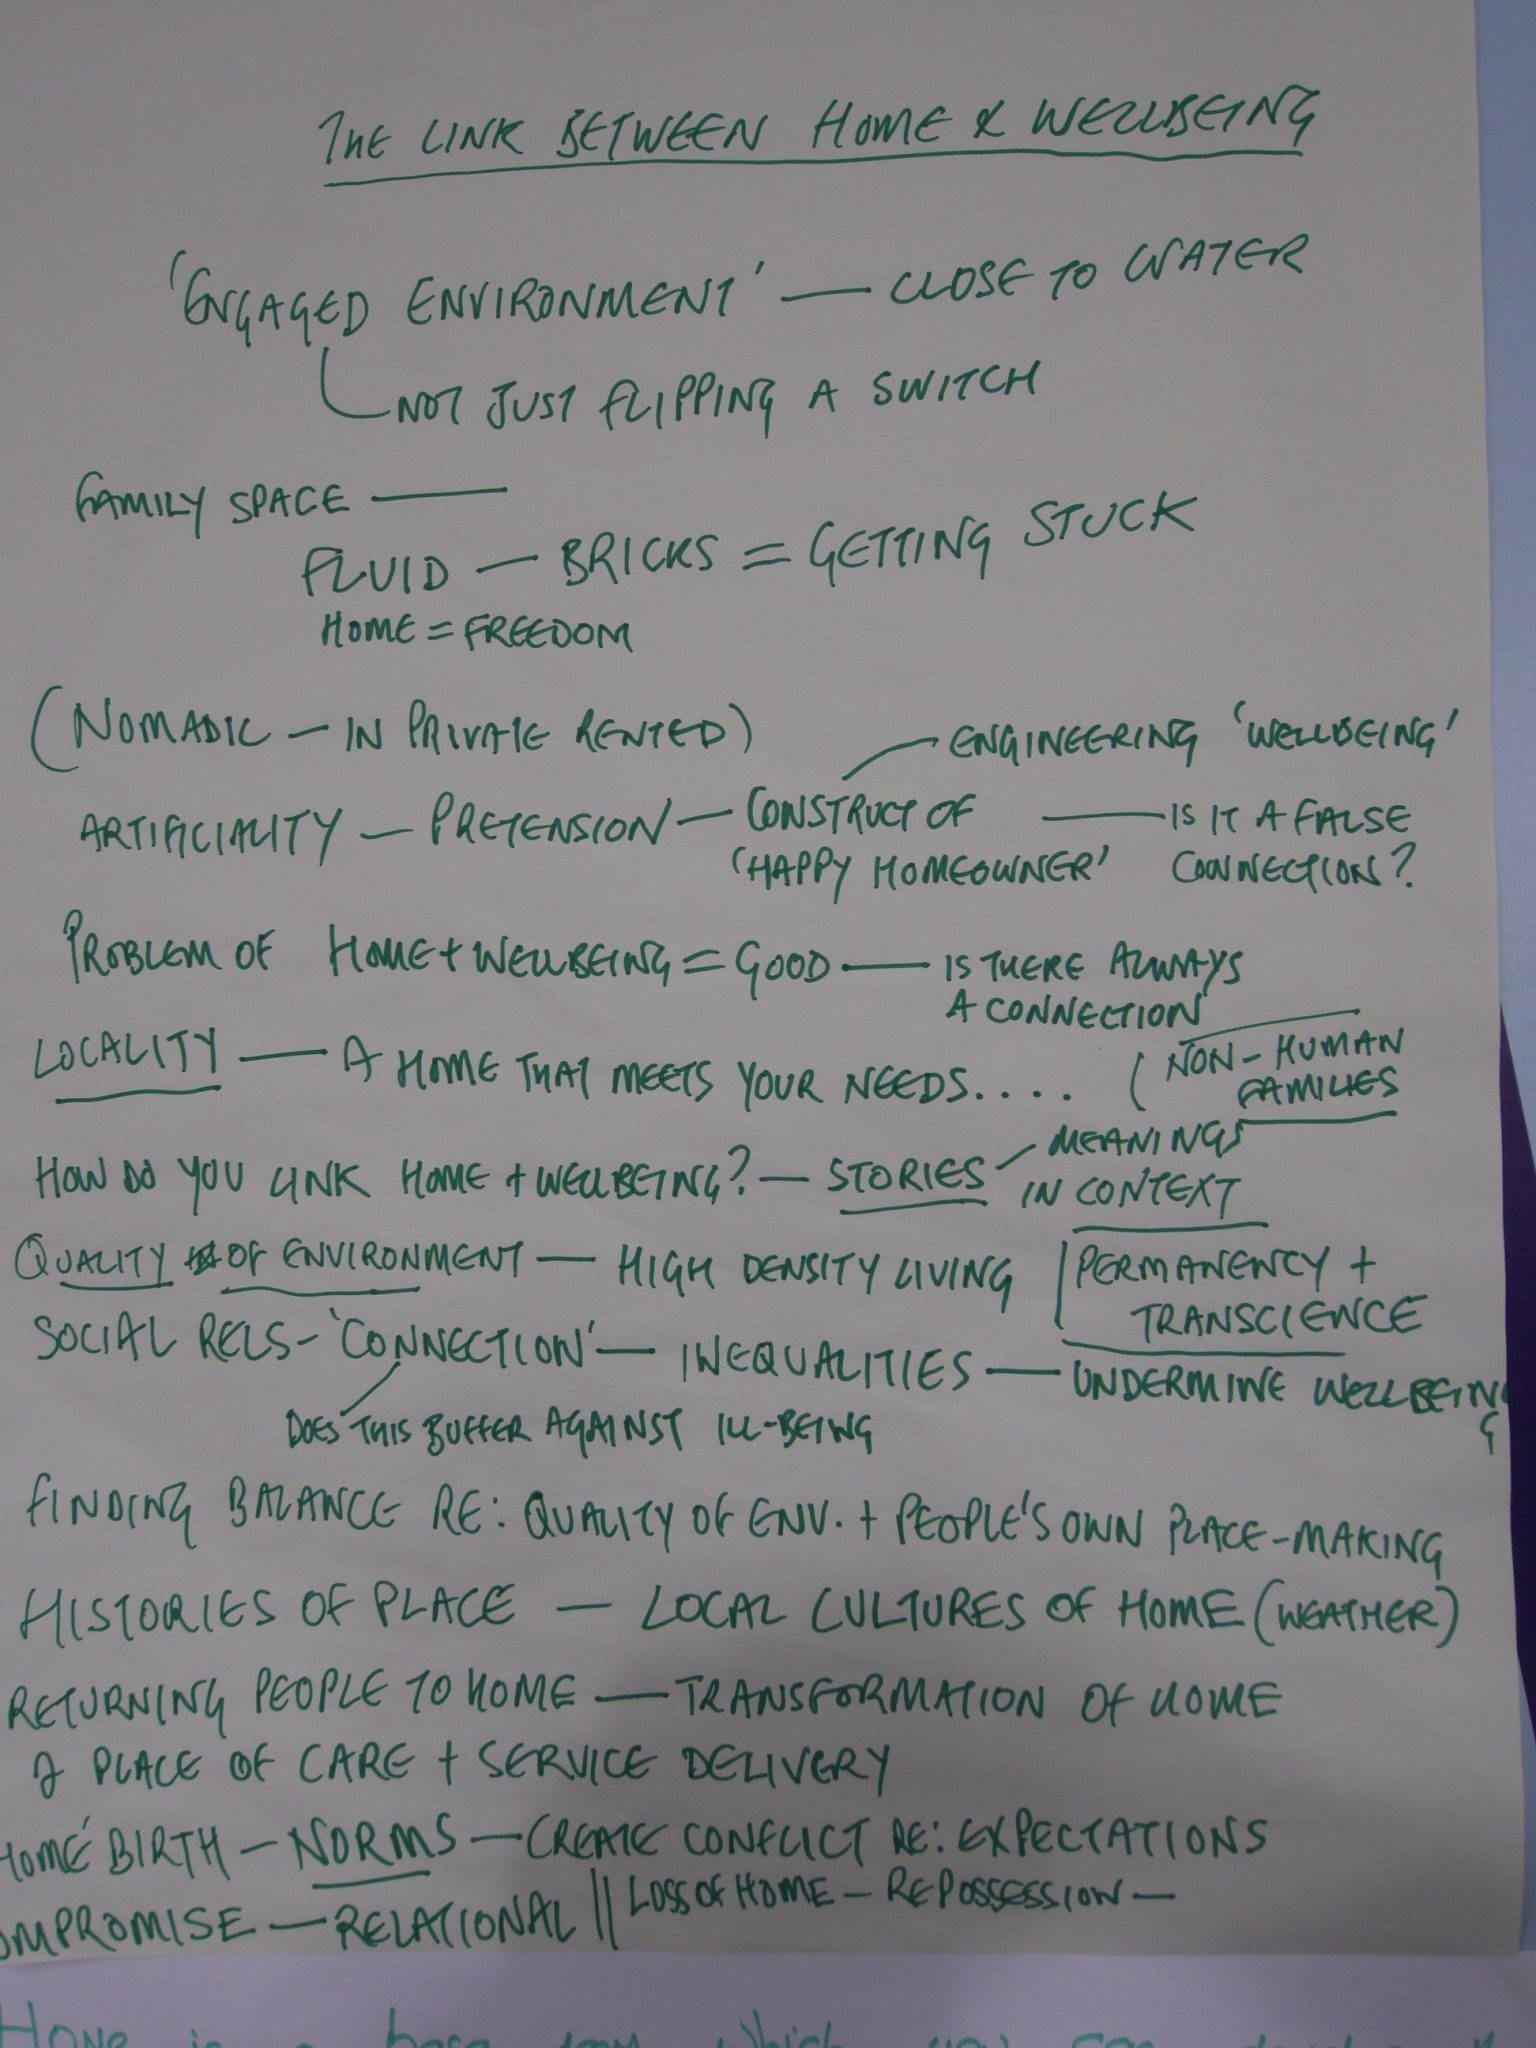 THE LINK BETWEEN HOME & WELLBEING
'ENGAGED ENVIRONMENT' — CLOSE TO WATER
NOT JUST FLIPPING A SWITCH
FAMILY SPACE —
FLUID — BRICKS = GETTING STUCK
HOME = FREEDOM
(NOMADIC — IN PRIVATE RENTED)
ENGINEERING 'WELLBEING'
ARTIFICIALITY — PRETENSION — CONSTRUCT OF — IS IT A FALSE
'HAPPY HOMEOWNER' CONNECTION?
PROBLEM OF HOME + WELLBEING = GOOD — IS THERE ALWAYS
A CONNECTION
LOCALITY — A HOME THAT MEETS YOUR NEEDS.... (NON-HUMAN
FAMILIES
HOW DO YOU LINK HOME + WELLBEING? — STORIES — MEANINGS
IN CONTEXT
QUALITY OF ENVIRONMENT — HIGH DENSITY LIVING PERMANENCY +
TRANSCIENCE
SOCIAL RELS - 'CONNECTION' — INEQUALITIES — UNDERMINE WELLBEING
G
DOES THIS BUFFER AGAINST ILL-BEING
FINDING BALANCE RE: QUALITY OF ENV. + PEOPLE'S OWN PLACE-MAKING
HISTORIES OF PLACE — LOCAL CULTURES OF HOME (WEATHER)
RETURNING PEOPLE TO HOME — TRANSFORMATION OF HOME
PLACE OF CARE + SERVICE DELIVERY
HOME BIRTH — NORMS — CREATE CONFLICT RE: EXPECTATIONS
OMPROMISE — RELATIONAL || LOSS OF HOME — REPOSSESSION —
Home is a base from which you can